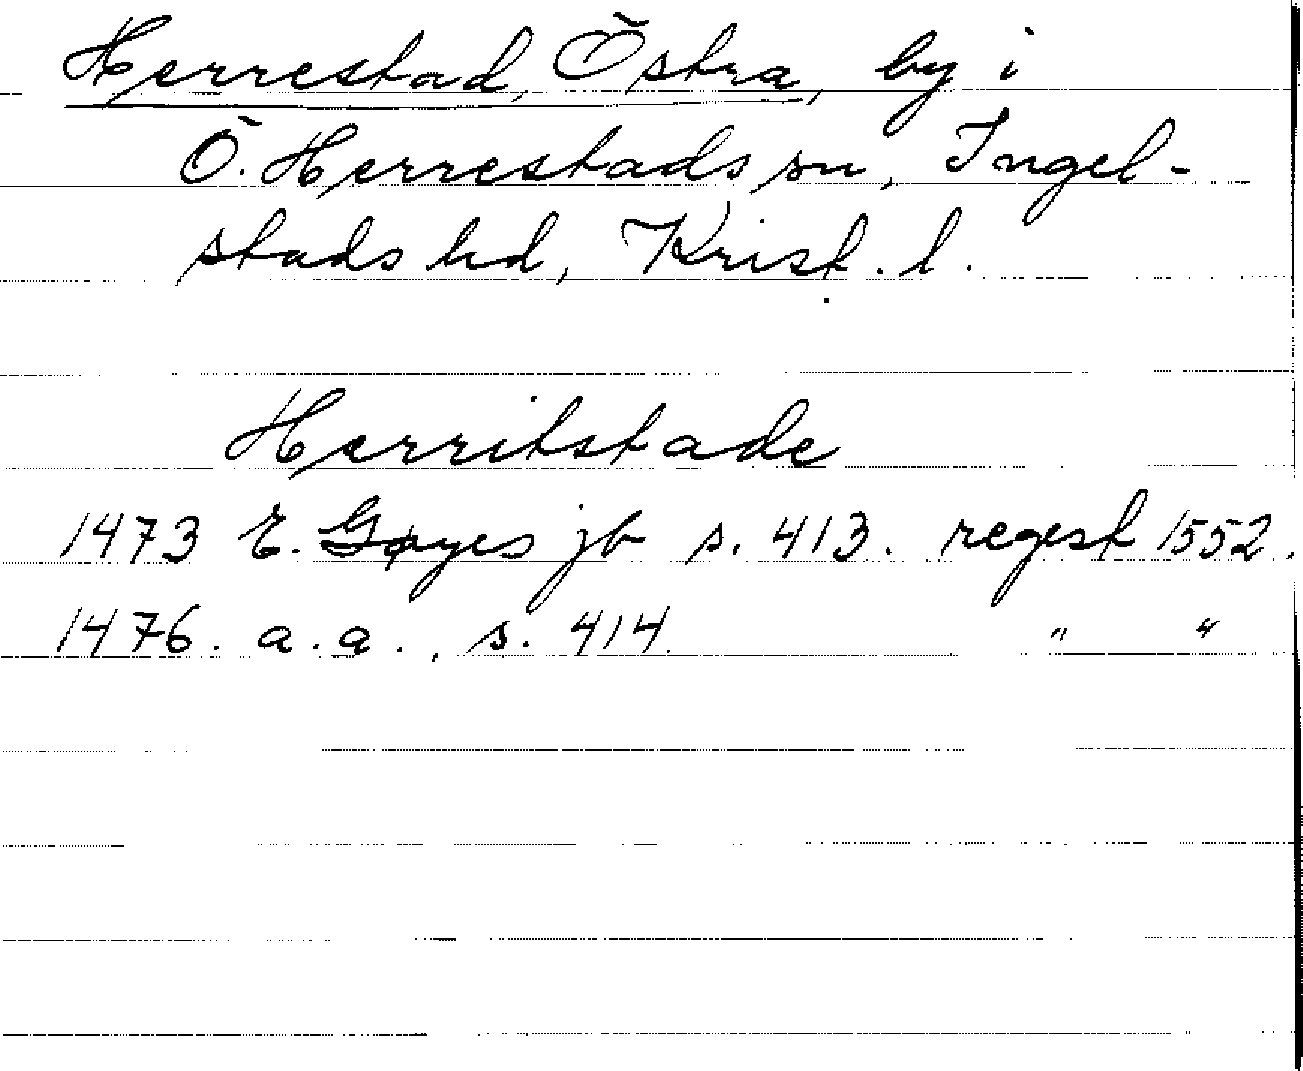 Herrestad, Östra, by i
Ö. Herrestads sn, Ingel-
stads hd, Krist. l.
Herritstade
1473 E. Gøyes jb s. 413. regest 1552.
1476. a.a., s. 414. " "